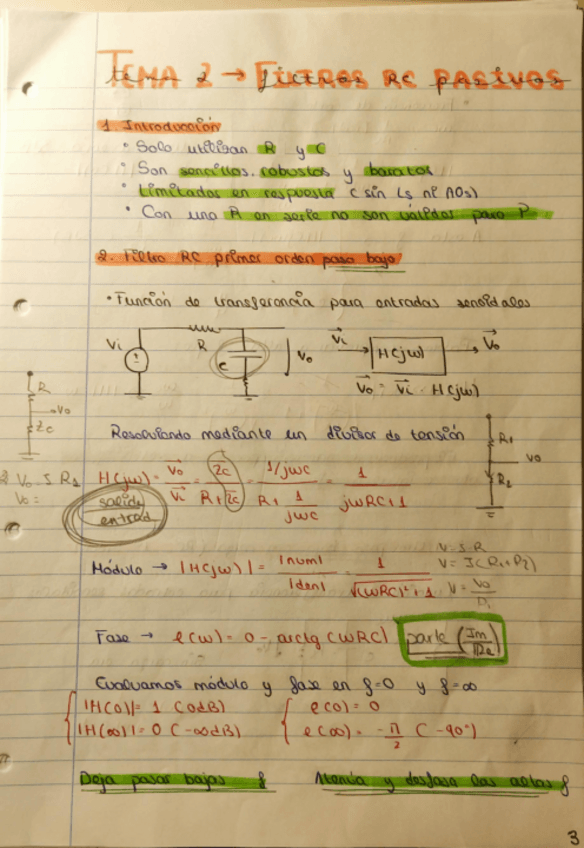 TEMA 2 → FILTROS RC PASIVOS
1. Introducción
• Solo utilizan R y C
• Son sencillos, robustos y baratos
• Limitados en respuesta (sin Ls ni AOs)
• Con una R en serie no son válidos para P
2. Filtro RC primer orden paso bajo
• Función de transferencia para entradas senoidales
Vi R C Vo Vi H(jω) Vo
Vo = Vi · H(jω)
R
Vo
Zc
Resolviendo mediante un divisor de tensión
R1
Vo
R2
H(jω) = Vo/Vi = Zc/(R+Zc) = (1/jωC)/(R + 1/jωC) = 1/(jωRC+1)
salida
entrad
Módulo → |H(jω)| = |num|/|den| = 1/√((ωRC)²+1)
V = I R
V = I(R1+R2)
Fase → φ(ω) = 0 - arctg (ωRC) (Im/Re)
Evaluamos módulo y fase en f=0 y f=∞
|H(0)| = 1 (0dB) φ(0) = 0
|H(∞)| = 0 (-∞dB) φ(∞) = -π/2 (-90°)
Deja pasar bajas f Atenúa y desfasa las altas f
3